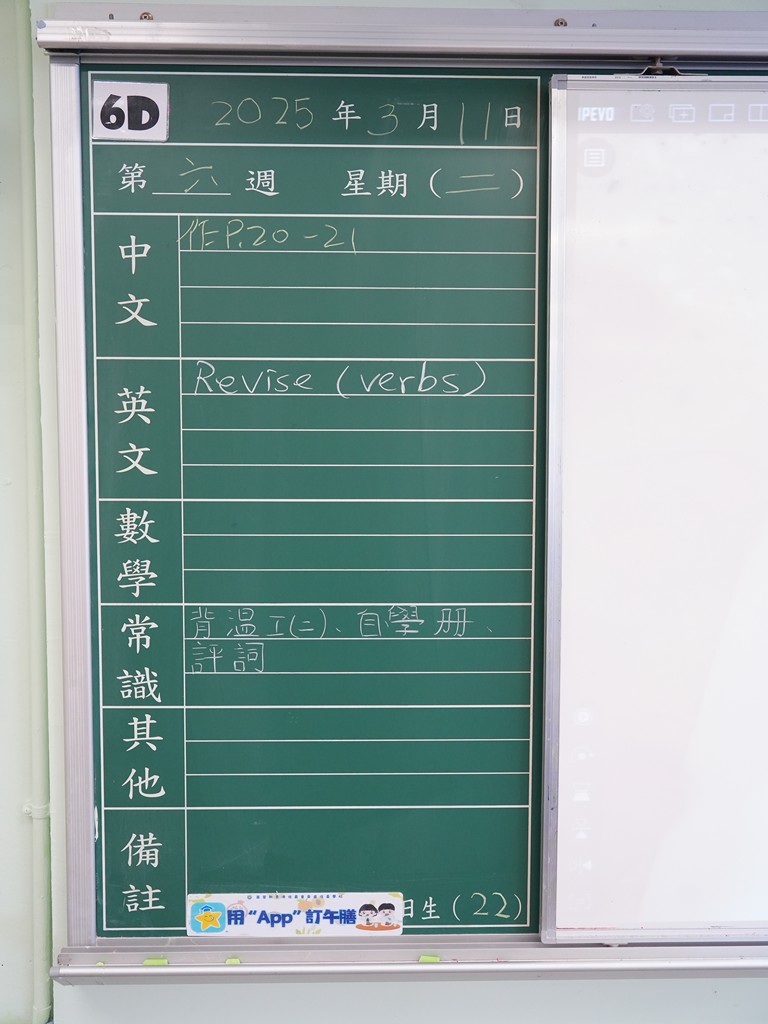 6D 2025年3月11日
第六週 星期(二)
中文
作P.20-21
英文
Revise (verbs)
數學
常識
背溫工(二)、自學册、
評詞
其他
備註
用“App”訂午膳
日生(22)
IPEVO